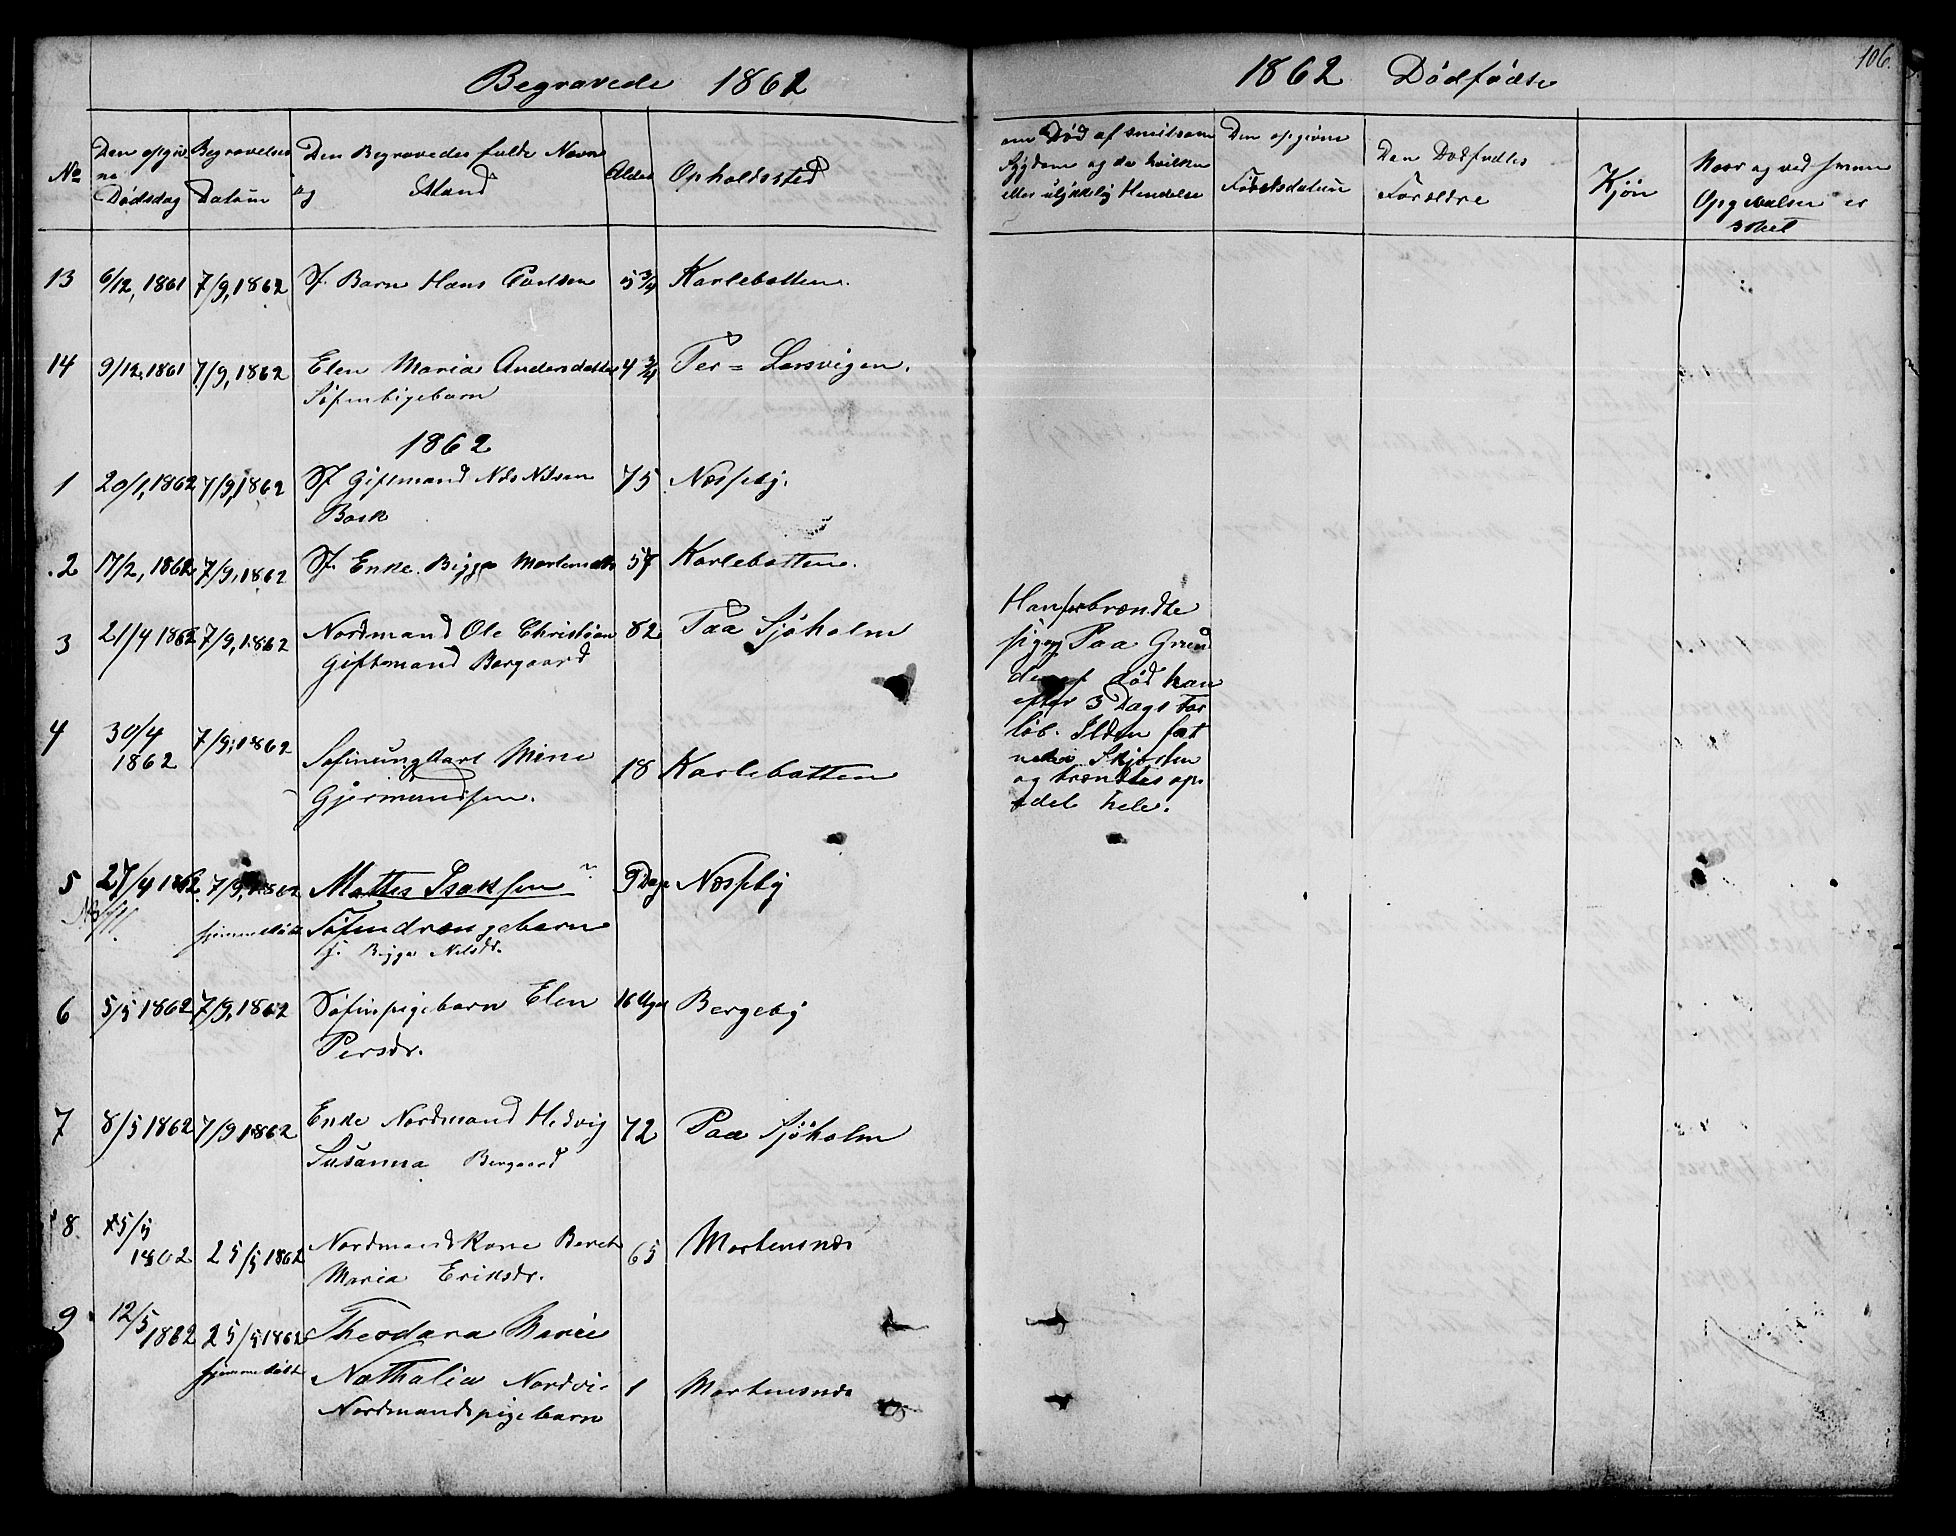 Begravede 1862
1862 Dødfødte
106.
No
Den opgivne Dødsdag
Begravelses Datum
Den Begravedes fulde Navn og Stand
Alder
Opholdssted
om Død af smitsom Sygdom og da hvilken eller ulykkelig Hændelse
Den opgivne Fødselsdatum
Den Dødfødtes Forældre
Kjøn
Naar og ved hvem Opgivelsen er skeet
13 6/12, 1861 7/9, 1862 Sf. Barn Hans Carlsen 5 3/4 Karlebotten.
14 9/12 1861 7/9, 1862 Elen Maria Andersdatter 4 3/4 Per = Larsvigen.
Søfinpigebarn
1862
1 20/1, 1862 7/9, 1862 Sf Giftmand Nils Nilsen 75 Næsseby.
Bask
2 17/2, 1862 7/9, 1862 Sf. Enke Bigga Mortensdtr 57 Karlebotten.
3 21/4 1862 7/9, 1862 Nordmand Ole Christian 82 Paa Sjøholm
Giftmand Bergaard
Han forbrændte
sig og Paa Grund
deraf død han
efter 3 Dags For
løb. Ilden fat
nede i Skjorten
og brændtes op
det hele.
4 30/4 1862 7/9, 1862
Søfinungkarl Mine 18 Karlebotten
Gjermundsen.
5 27/4 1862 7/9, 1862 Mattis Isaksen 9 Dage Næsseby
NB hjemmedøbt Søfindrengebarn
f. Bigga Nilsdr.
6 5/5 1862 7/9, 1862 Søfinpigebarn Elen 16 Uger Bergeby
Persdr.
7 8/5 1862 7/9 1862 Enke Nordmand Hedvig 72 Paa Sjøholm
Susanna Bergaard
8. 15/5
1862 25/5 1862 Nordmandskone Beret 65 Mortensnæs
Maria Eriksdr.
9 12/5 1862 25/5 1862 Theodora Marie
hjemmedøbt Nathalia Nordvi 1 Mortensnæs
Nordmandspigebarn